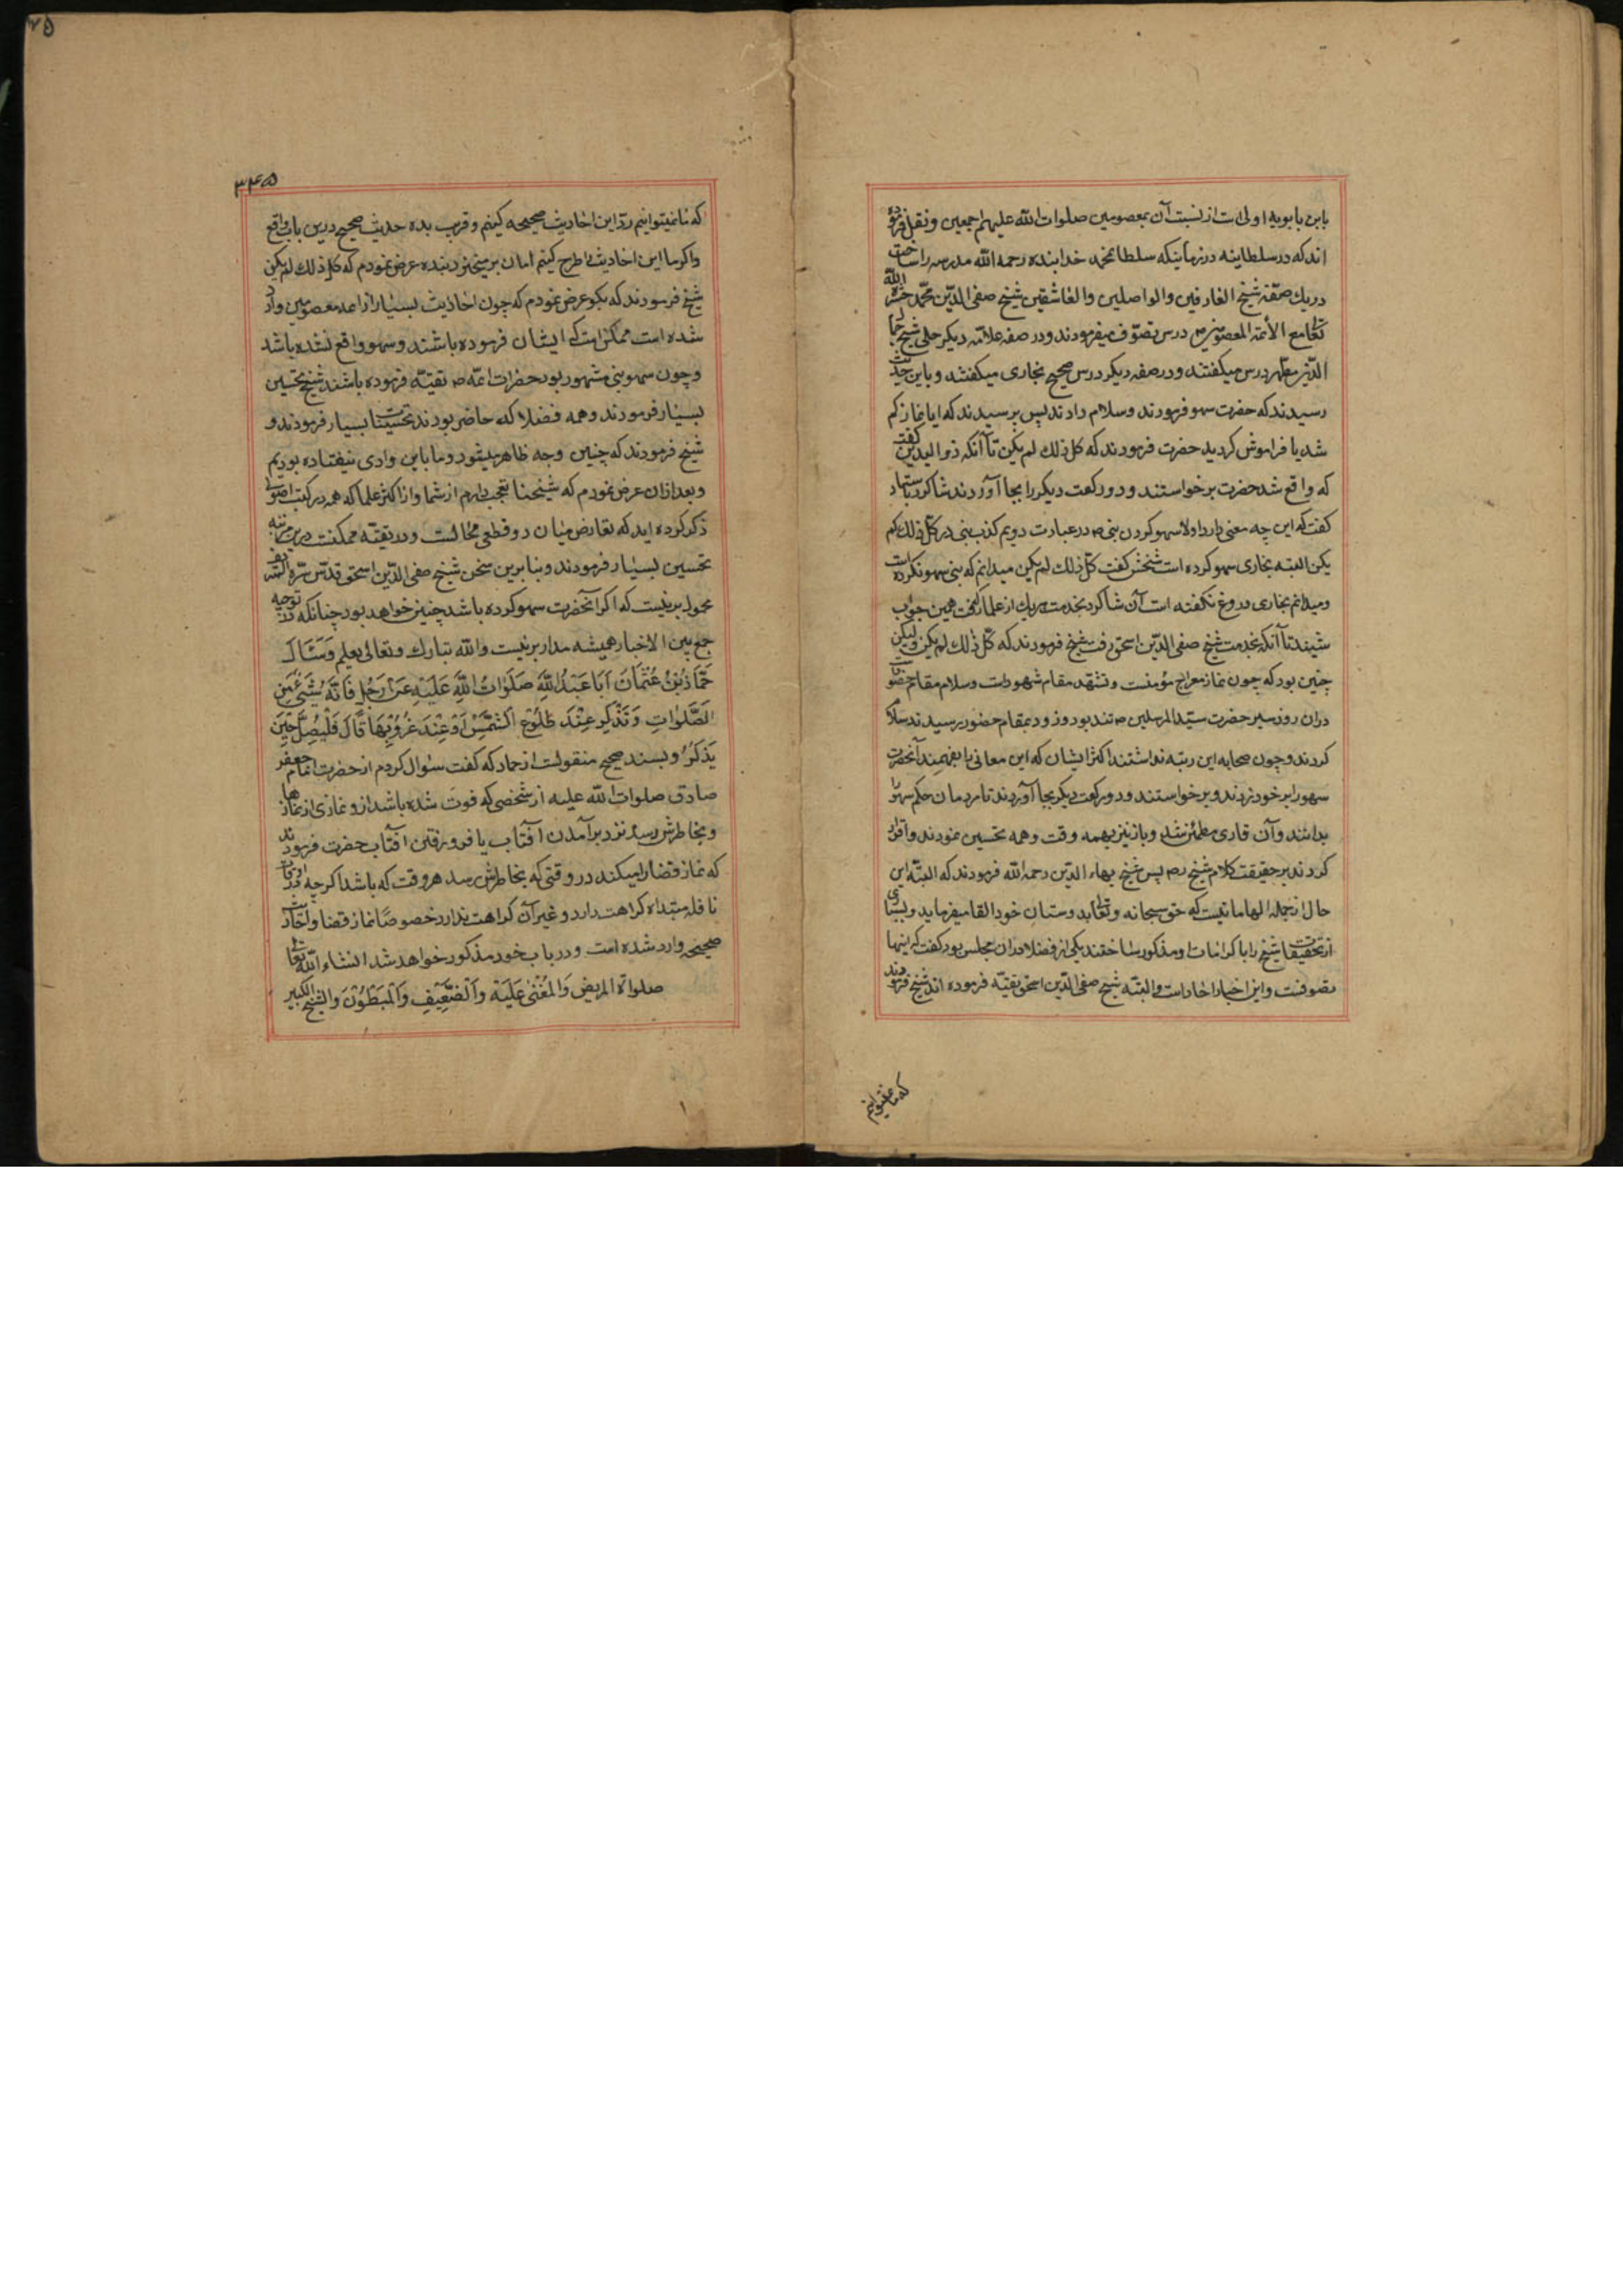 بابن بابویه اولی است از نسبت آن بمعصومین صلوات الله علیهم اجمعین و نقل فرموده
اند که در سلطانیه در زمانیکه سلطان محمد خدابنده رحمه الله مدرسه را ساخت
در یك صفّه شیخ العارفین والواصلین والعاشقین شیخ صفی الدّین محمّد حشره الله
تعالی مع الأئمة المعصومین ص درس تصوّف میفرمودند و در صفه علامّه دیگر حلی شیخ جمال
الدّین مطهّر درس میگفتند و در صفه دیگر درس صحیح بخاری میگفتند و باین حدیث
رسیدند که حضرت سهو فرمودند و سلام دادند پس پرسیدند که ایا نماز کم
شد یا فراموش کردید حضرت فرمودند که کل ذلك لم یکن تا آنکه ذوالیدین گفت
که واقع شد حضرت برخواستند و دو رکعت دیگر را بجا آوردند شاکرد باستاد
کفت که این چه معنی دارد اولا سهو کردن نبی ص در عبارت دویم کذب نبی در کل ذلك لم
یکن البته بخاری سهو کرده است شخش کفت کلّ ذلك لم یکن میدانم که نبی سهو نکرده است
و میدانم بخاری دروغ نکفته است آن شاکرد بخدمت هریك از علما که گفت همین جواب
شنید تا آنکه بخدمت شیخ صفی الدّین اسحق رفت شیخ فرمودند که کلّ ذلك لم یکن و لیکن
چنین بود که چون نماز معراج مؤمنست و تشهّد مقام شهود است و سلام مقام حضور
در آن روز سیر حضرت سیّد المرسلین ص تند بود و زود بمقام حضور رسیدند سلام
کردند و چون صحابه این رتبه نداشتند اکثر ایشان که این معانی را بفهمند آنحضرت
سهو را بر خود زدند و برخواستند و دو رکعت دیگر بجا آوردند تا مردمان حکم سهو را
بدانند و آن قاری مطمئن شد و باز نیز بهمه وقت و همه تحسین نمودند و اقرار
کردند بر حقیقت کلام شیخ ره پس شیخ بهاء الدّین رحمه الله فرمودند که البتّه این
حال از جمله الهاماتیست که حق سبحانه و تعالی بدوستان خود القا میفرماید و بسیاری
از تحقیقات شیخ را با کرامات او مذکور ساختند یکی از فضلا در ان مجلس بود کفت که اینها
تصوفست و این اخبار اخاد است و البتّه شیخ صفی الدّین اسحق تقیّه فرموده اند شیخ فرمودند
که ما نمیتوانیم
۳۴۵
که ما نمیتوانیم ردّ این احادیث صحیحه کنیم و قریب بده حدیث صحیح درین باب واقع
و اکر ما این احادیث را طرح کنیم امان بر میخیزد بنده عرض نمودم که کل ذلك لم یکن
شیخ فرمودند که بکو عرض نمودم که چون احادیث بسیار از ائمه معصومین وارد
شده است ممکن است که ایشان فرموده باشند و سهو واقع نشده باشد
و چون سهو نبی مشهور بود حضرات ائمّه ص تقیّه فرموده باشند شیخ تحسین
بسیار فرمودند و همه فضلا که حاضر بودند تحسینات بسیار فرمودند و
شیخ فرمودند که چنین وجه ظاهر میشود و ما باین وادی نیفتاده بودیم
و بعد ازان عرض نمودم که شیخنا تعجب دارم از شما و از اکثر علما که همه در کتب اصول
ذکر کرده اید که تعارض میان دو قطعی محالست و در تقیّه ممکنست درین مرتبه
تحسین بسیار فرمودند و بنا برین سخن شیخ صفی الدّین اسحق قدّس سرّه الشریف
محمول برینست که اکر آنحضرت سهو کرده باشد چنین خواهد بود چنانکه در توجیه
جمع بین الاخبار همیشه مدار برینست والله تبارك وتعالی یعلم وَسَئَالَ
حَمّادُ بْنُ عُثْمَانَ اَبَا عَبْدِ اللهِ صَلَوَاتُ اللهِ عَلَیْهِ عَنْ رَجُلٍ فَاتَهُ شَیْئٌ مِنَ
الصَّلَوَاتِ وَتَذَکَّرَ عِنْدَ طُلُوعِ الشَّمْسِ اَوْ عِنْدَ غُرُوبِهَا قَالَ فَلْیُصَلِّ حِینَ
یَذْکُرُ و بسند صحیح منقولست از حماد که کفت سئوال کردم از حضرت امام جعفر
صادق صلوات الله علیه از شخصی که فوت شده باشد از و نمازی از نمازها
و بخاطرش رسد نزد برآمدن آفتاب یا فرو رفتن آفتاب حضرت فرمودند
که نماز قضا را میکند در وقتی که بخاطرش رسد هر وقت که باشد اکرچه در اوقات
نافله مبتداه کراهت دارد و غیر آن کراهت ندارد خصوصًا نماز قضا و احادیث
صحیحه وارد شده است و در باب خود مذکور خواهد شد انشاء الله تعالی
صلواة المریض وَالمُغْمٰی عَلَیْه وَالضَّعِیفِ وَالْمَبْطُوْنِ وَالشّیخ الکبیر